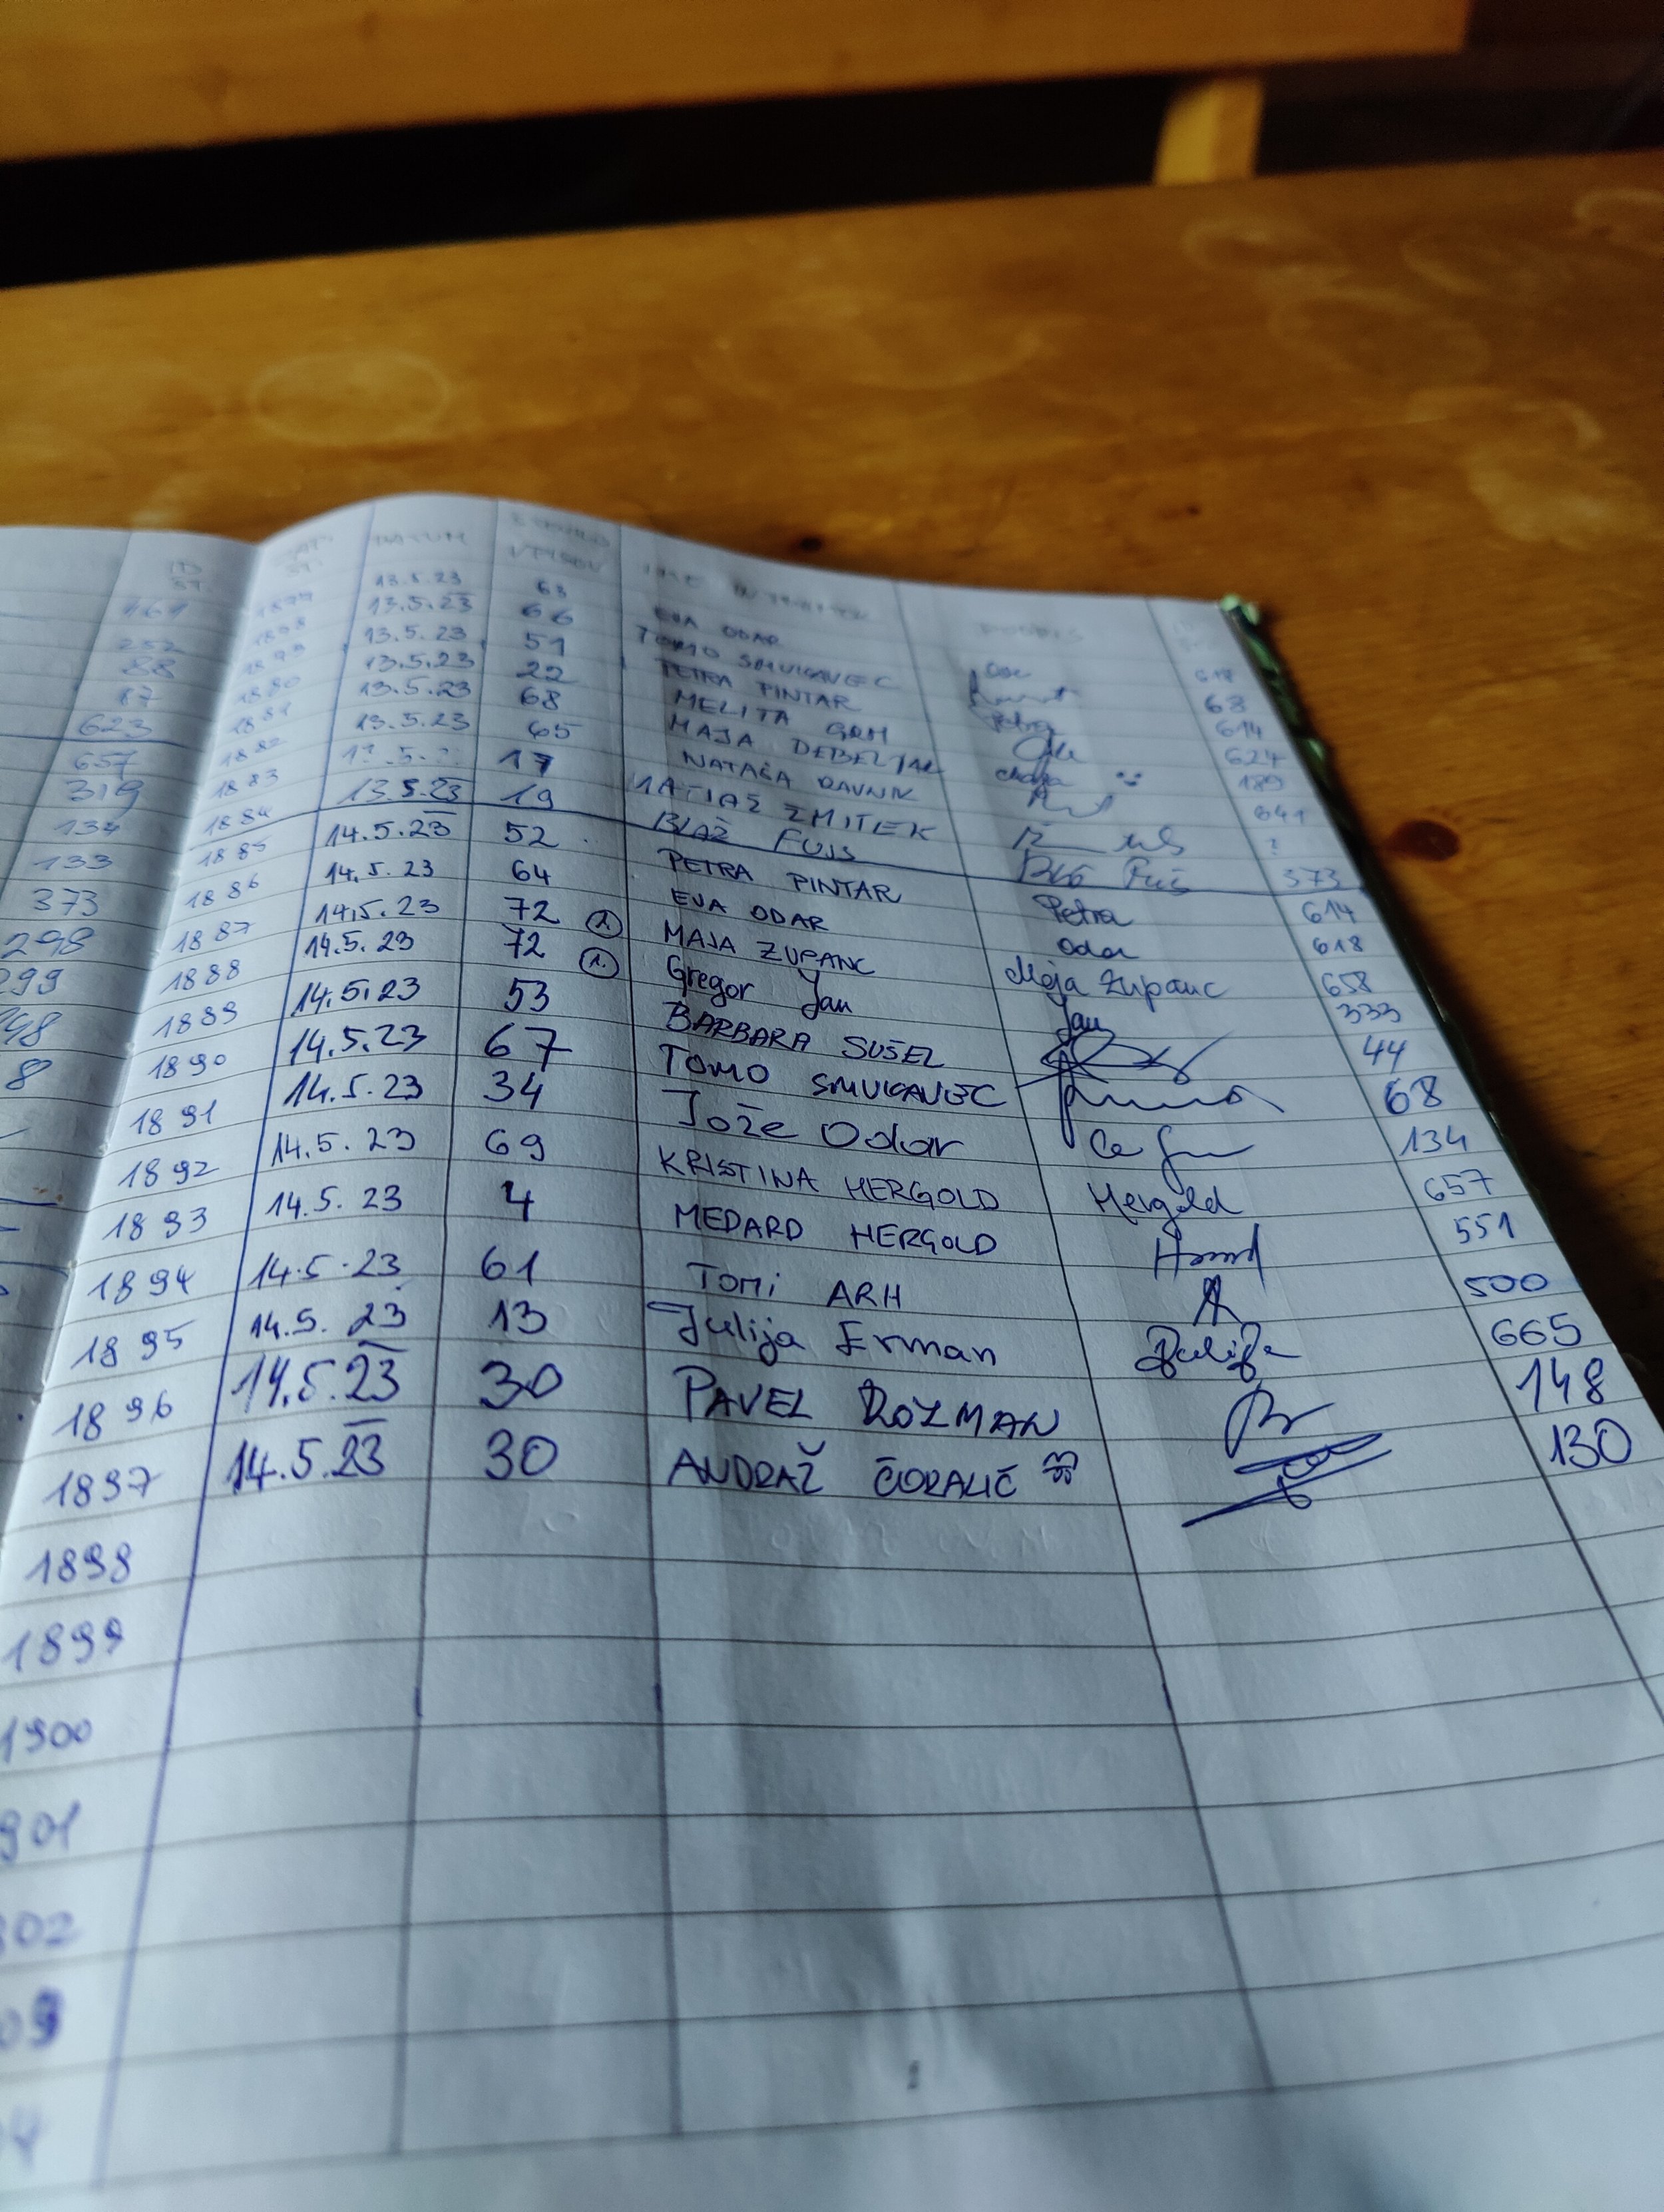 DATUM
1877 13.5.23 63 EVA ODAR 618
1878 13.5.23 66 TOMO SMUKAVEC 68
1879 13.5.23 51 PETRA PINTAR Petra 614
1880 13.5.23 22 MELITA GRM 624
1881 13.5.23 68 MAJA DEBELJAK 189
1882 13.5.23 65 NATAŠA RAVNIK 641
1883 17 MATJAŽ ZMITEK ?
1884 13.5.23 19 BLAŽ FUIS 373
1885 14.5.23 52 PETRA PINTAR Petra 614
1886 14.5.23 64 EVA ODAR Odar 618
1887 14.5.23 72 1. MAJA ZUPANC Maja Zupanc 658
1888 14.5.23 72 1. Gregor Jan Jan 333
1889 14.5.23 53 BARBARA SUŠEL 44
1890 14.5.23 67 TOMO SMUKAVEC 68
1891 14.5.23 34 Jože Odar 134
1892 14.5.23 69 KRISTINA HERGOLD Hergold 657
1893 14.5.23 4 MEDARD HERGOLD 551
1894 14.5.23 61 TOMI ARH 500
1895 14.5.23 13 Julija Erman Julija 665
1896 14.5.23 30 PAVEL ROZMAN 148
1897 14.5.23 30 ANDRAŽ ČORALIČ 130
1898
1899
1900
901
02
03
4
161
252
88
17
623
657
319
134
133
373
298
299
8